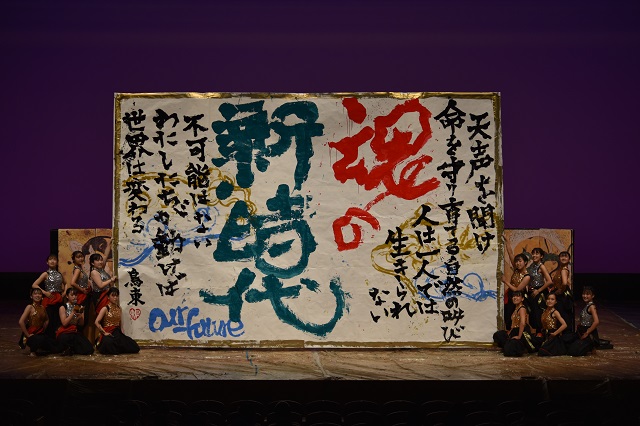 天声を聞け
命を守り育る自然の叫び
人は一人では
生きられ
ない
魂の
新時代
不可能はない
わたしたちが動けば
世界は変わる
鳥東
our future